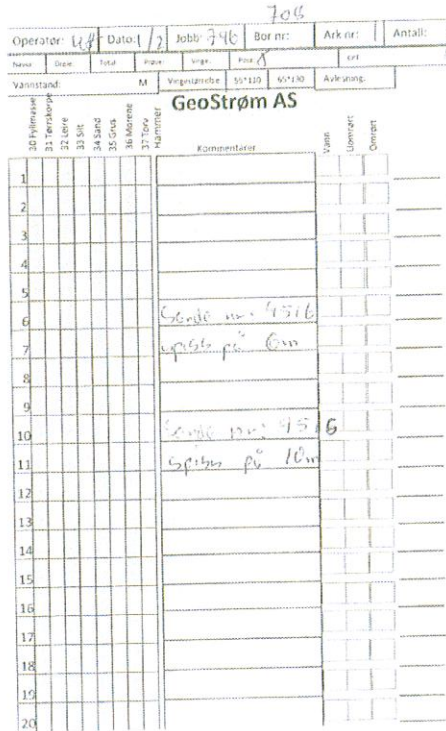 708
Operatør: Dato: 1/2 Jobb: 746 Bor nr: Ark nr: 1 Antall:
Navn Dreie. Total Prøve: Vinge. Pose. CPT
Vannstand: M Vingestørrelse 55*110 65*130 Avlesning:
GeoStrøm AS
30 Fyllmasse
31 Tørrskorpe
32 Leire
33 Silt
34 Sand
35 Grus
36 Morene
37 Torv
Hammer
Kommentarer
Vann
Uomrørt
Omrørt
1
2
3
4
5
Sonde nr: 4516
6
spiss på 6m
7
8
9
Sonde nr: 4516
10
spiss på 10m
11
12
13
14
15
16
17
18
19
20